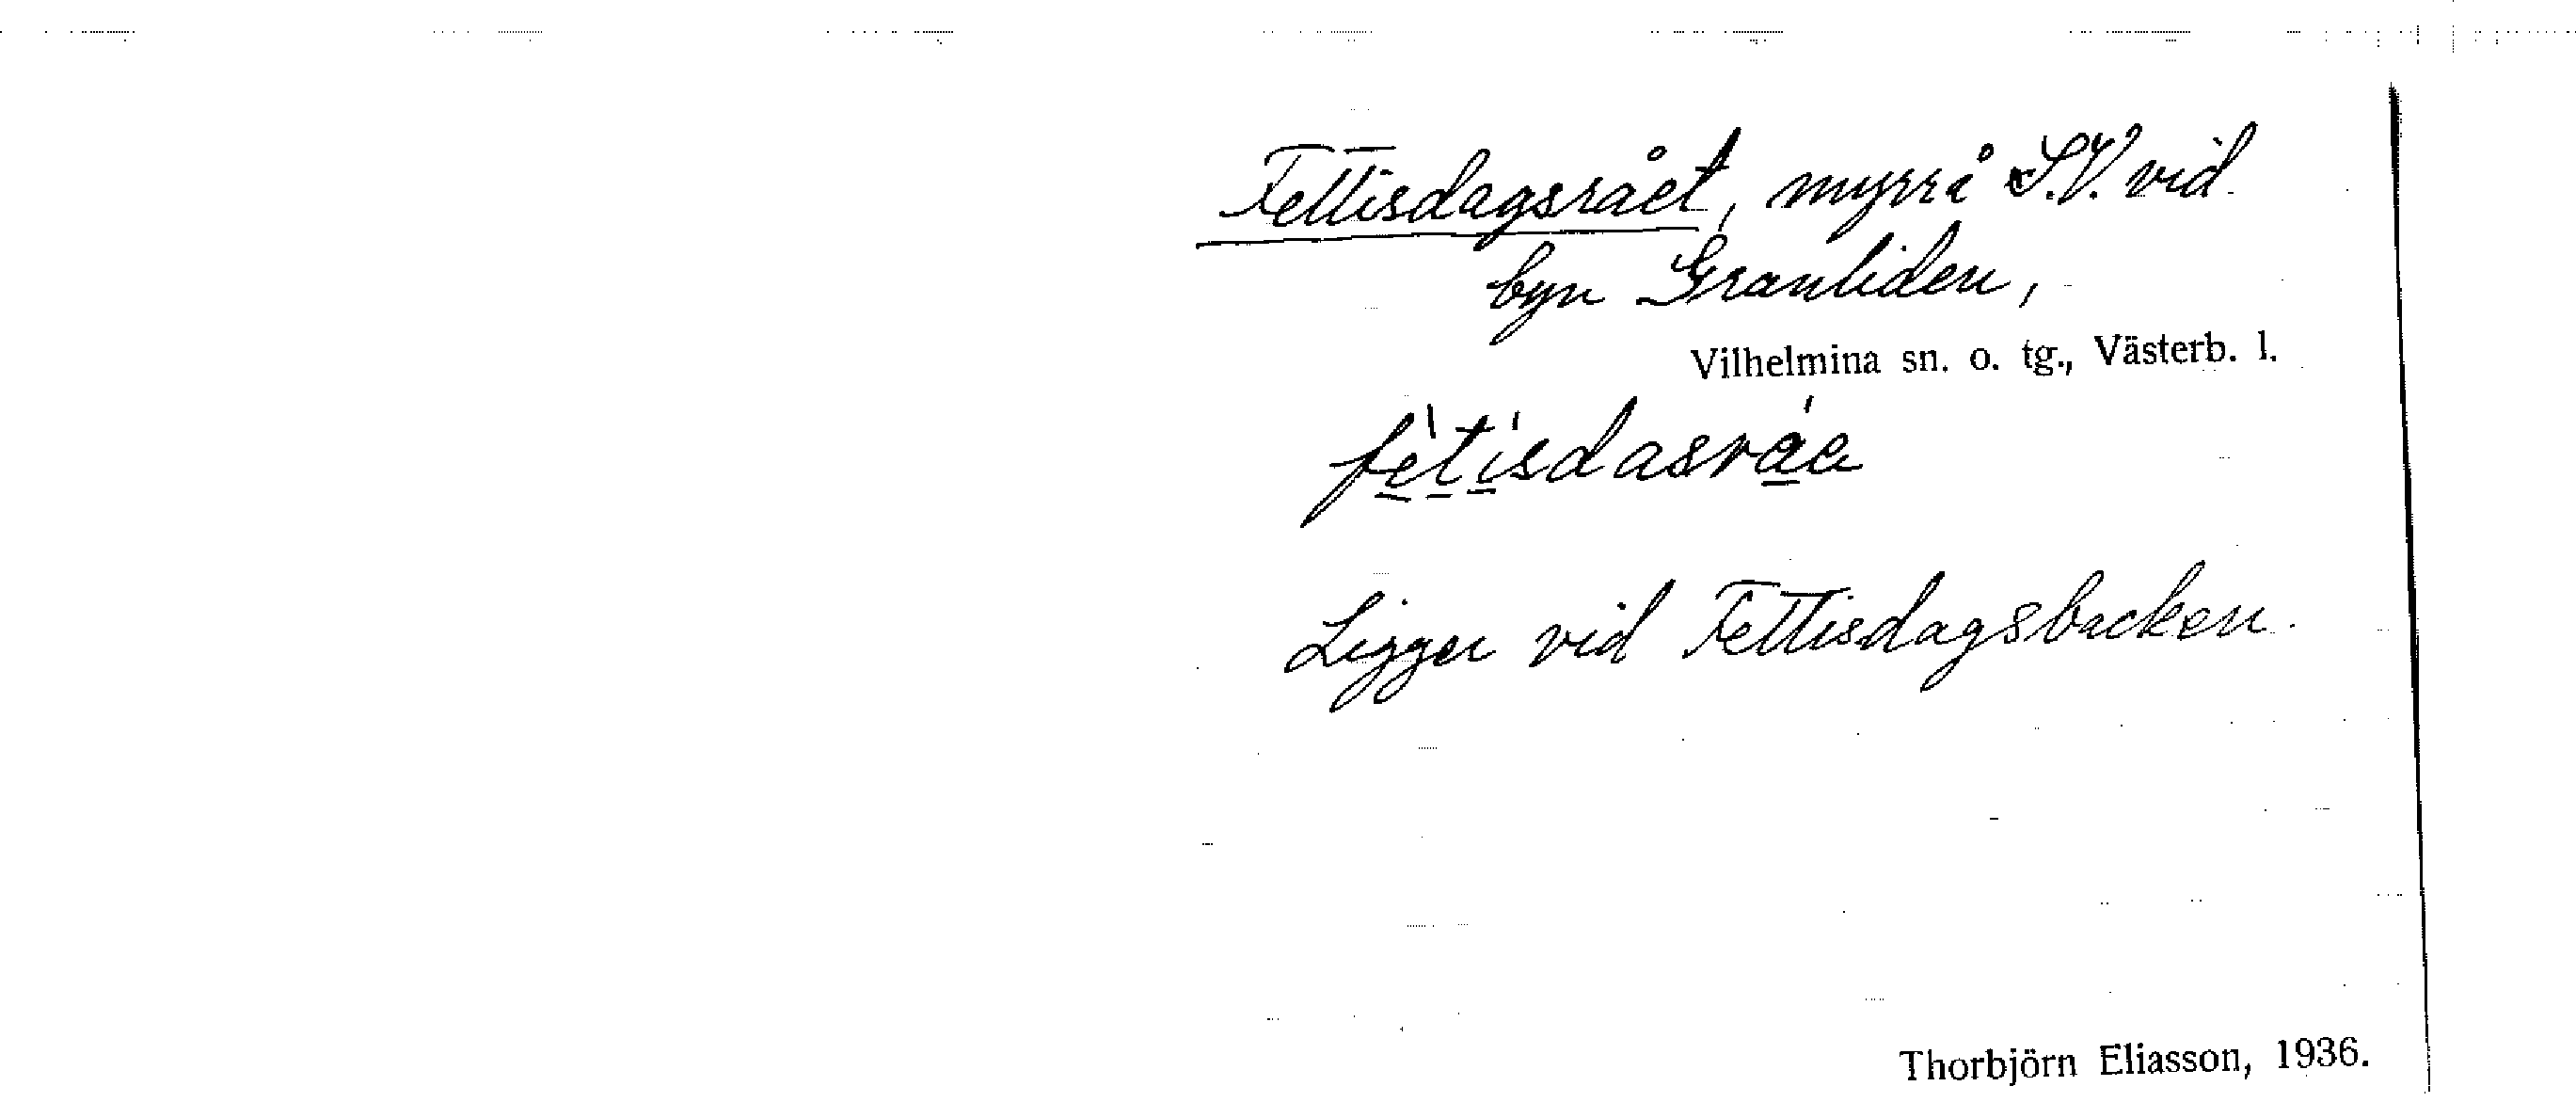 Fettisdagsrået, myrrå S.V. vid
byn Granliden,
Vilhelmina sn. o. tg., Västerb. l.
fètisdasráa
Ligger vid Fettisdagsbacken.
Thorbjörn Eliasson, 1936.